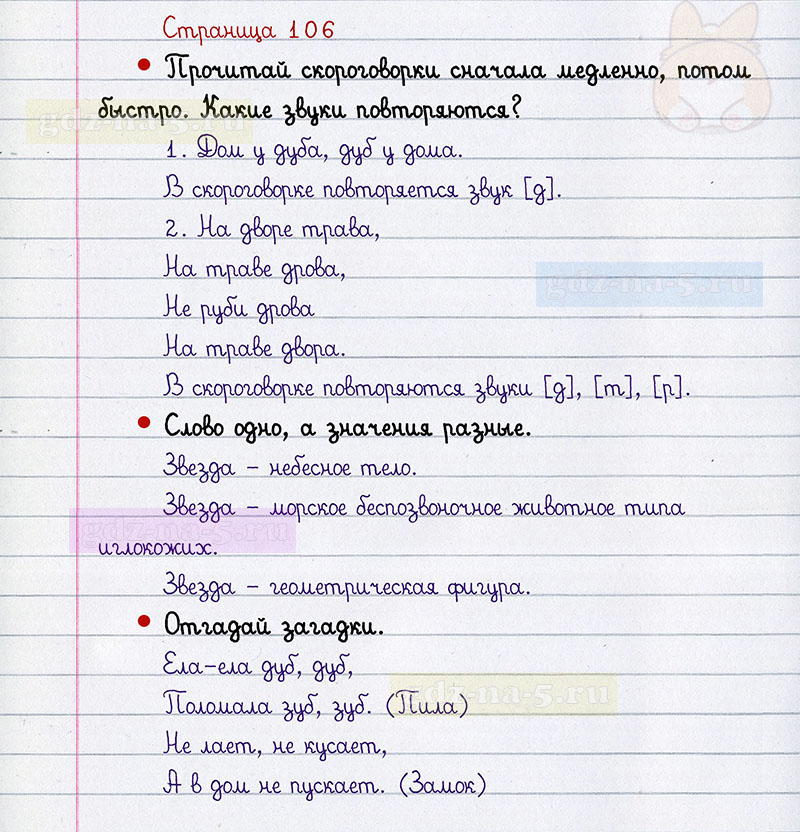 Страница 106
• Прочитай скороговорки сначала медленно, потом
быстро. Какие звуки повторяются?
gdz-na-5.ru
1. Дом у дуба, дуб у дома.
В скороговорке повторяется звук [д].
2. На дворе трава,
На траве дрова,
gdz-na-5.ru
Не руби дрова
На траве двора.
В скороговорке повторяются звуки [д], [т], [р].
• Слово одно, а значения разные.
Звезда – небесное тело.
Звезда – морское беспозвоночное животное типа
gdz-na-5.ru
иглокожих.
Звезда – геометрическая фигура.
• Отгадай загадки.
Ела-ела дуб, дуб,
gdz-na-5.ru
Поломала зуб, зуб. (Пила)
Не лает, не кусает,
А в дом не пускает. (Замок)